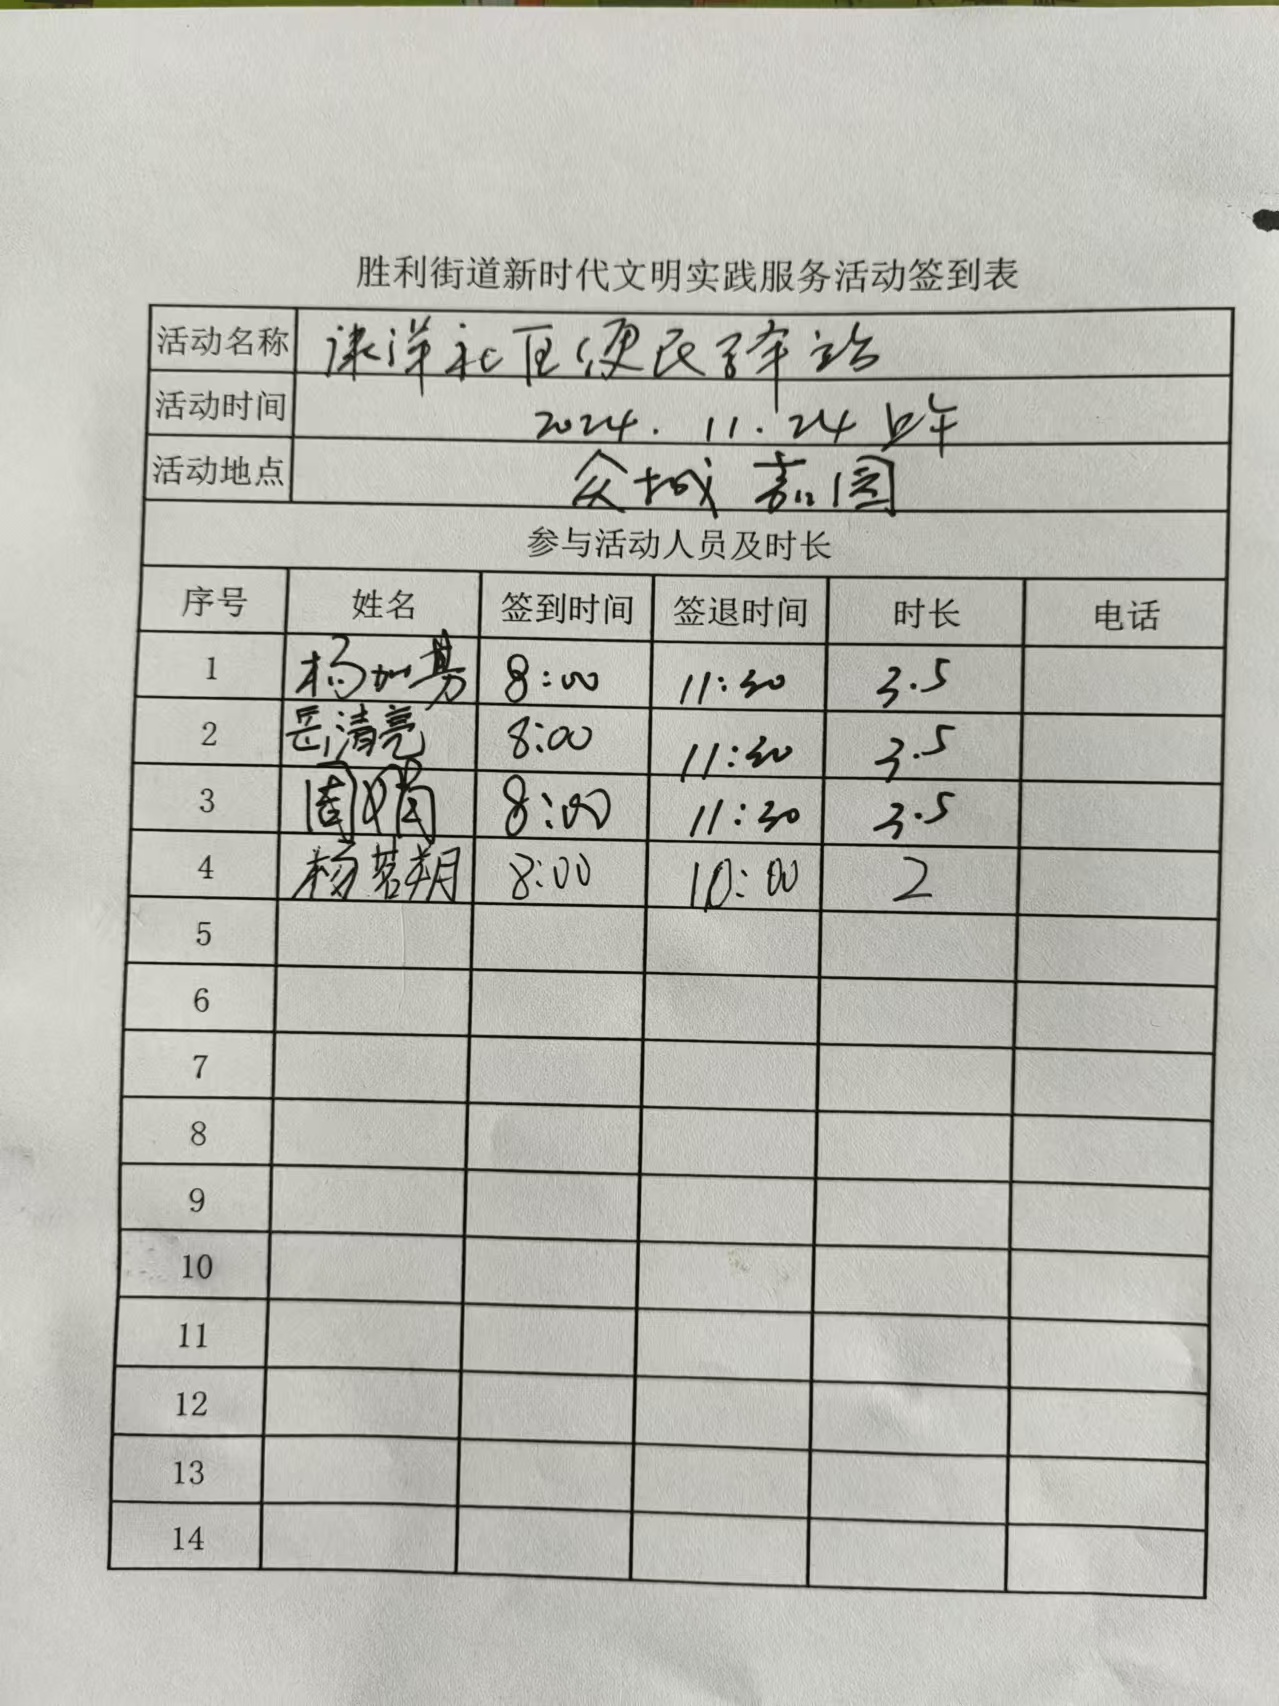 胜利街道新时代文明实践服务活动签到表
活动名称 洋社区便民驿站
活动时间 2024.11.24 上午
活动地点 众城嘉园
参与活动人员及时长
序号 姓名 签到时间 签退时间 时长 电话
1 杨加勇 8:00 11:30 3.5
2 岳清亮 8:00 11:30 3.5
3 周娟 8:00 11:30 3.5
4 杨茗朔 8:00 10:00 2
5
6
7
8
9
10
11
12
13
14